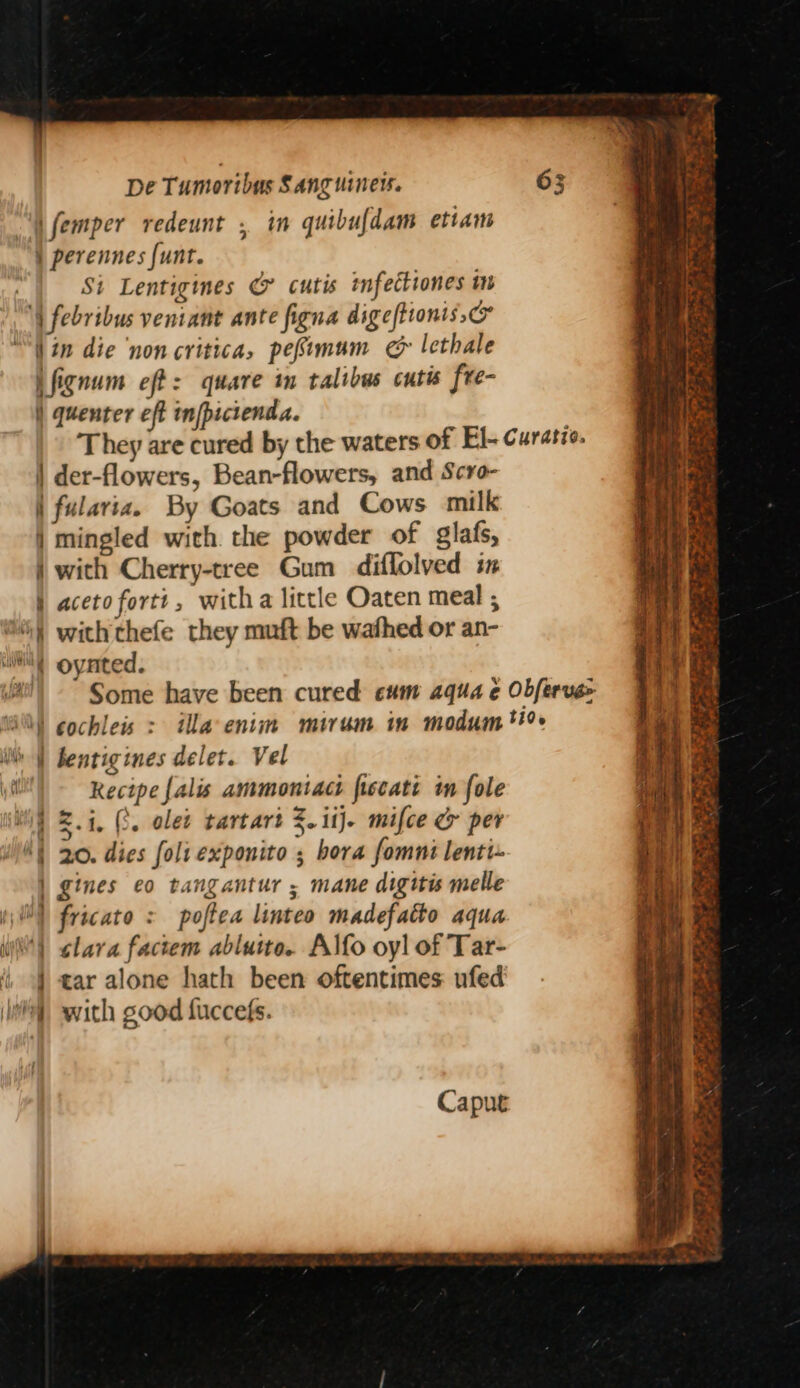 De Tumoribus Sanguineis. 63
ſemper redeunt ; in quibuſdam etiam
perennes ſunt.
Si Lentigines & cutis infectiones in
febribus veniant ante ſigna digeſtionis, &
in die non critica, peſſimum & lethale
ſignum eſt: quare in talibus cutis fre-
quenter eſt inſpicienda.
They are cured by the waters of El- Curatio.
der-flowers, Bean-flowers, and Scro-
fularia. By Goats and Cows milk
mingled with the powder of glaſs,
with Cherry-tree Gum diſſolved in
aceto forti, with a little Oaten meal ;
with theſe they muſt be waſhed or an-
oynted.
Some have been cured cum aqua è Obſerva-
cochleis : illa enim mirum in modum tio.
lentigines delet. Vel
Recipe ſalis ammoniaci ſiccati in ſole
℥.i. ß. olei tartari ℥.iij. miſce & per
20. dies ſoli exponito ; hora ſomni lenti-
gines eo tangantur ; mane digitis melle
fricato : poſtea linteo madefacto aqua
clara faciem abluito. Alſo oyl of Tar-
tar alone hath been oftentimes uſed
with good ſucceſs.
Caput